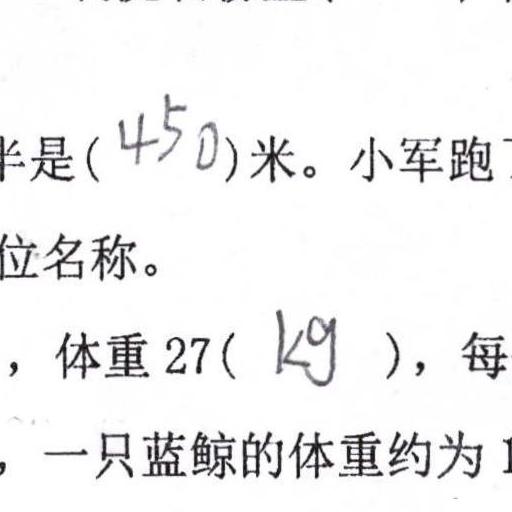 半是(450)米。小军跑
位名称。
，体重27(kg)，每
，一只蓝鲸的体重约为1